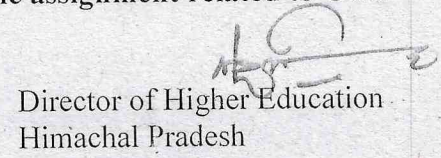 assignment related
Director of Higher Education
Himachal Pradesh